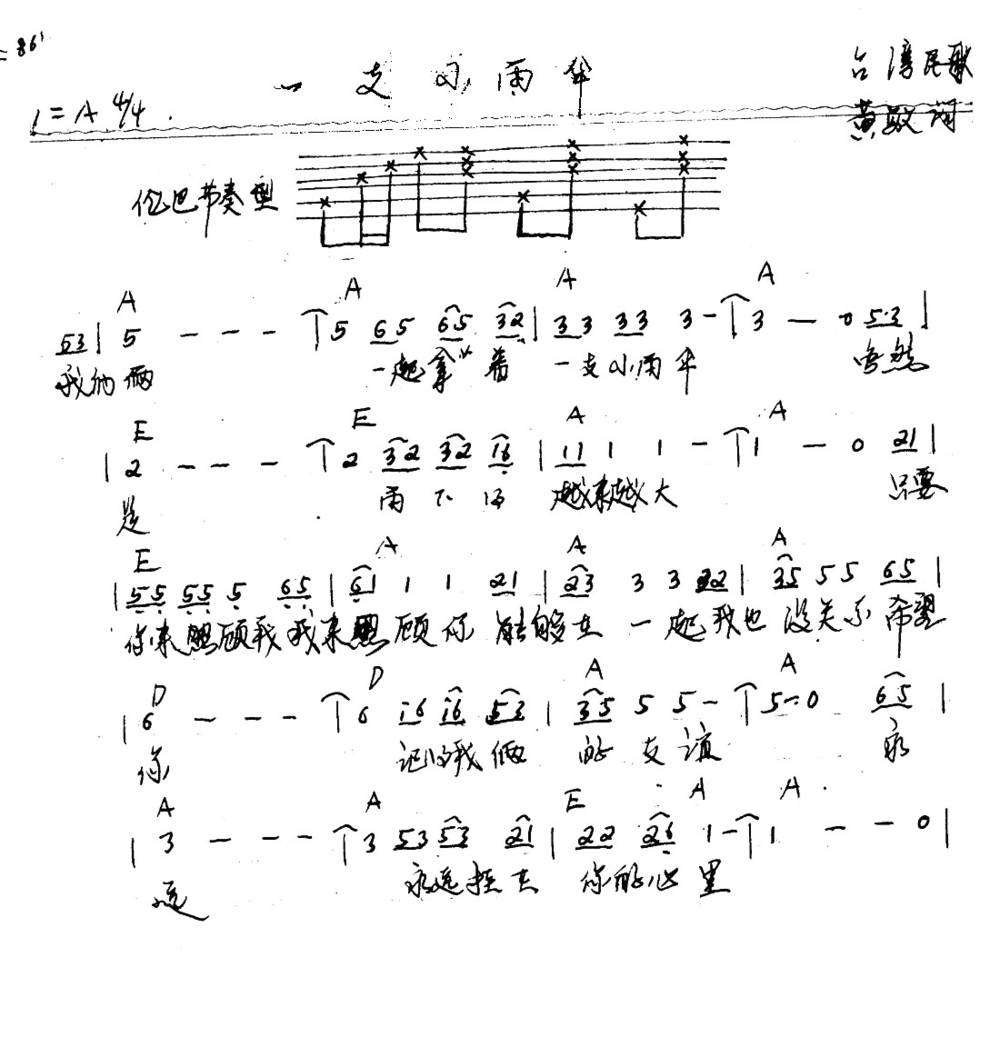 = 86'
一支小雨伞
台湾民歌
1=A 4/4
黄敏
伦巴节奏型
A A A A
53 | 5 - - - | 5 65 65 32 | 33 33 3 - | 3 — 0 53 |
我们俩 一起拿着 一支小雨伞 虽然
E E A A
| 2 - - - | 2 32 32 16 | 11 1 1 - | 1 — 0 21 |
是 雨下得 越来越大 只要
E A A A
| 55 55 5 65 | 61 1 1 21 | 23 3 3 22 | 35 5 5 65 |
你来照顾我我来照顾你 能够在一起我也没关系 希望
D D A A
| 6 - - - | 6 i6 i6 53 | 35 5 5 - | 5 - 0 65 |
你 记得我俩 的友谊 永
A A E A A
| 3 - - - | 3 53 53 21 | 22 26 1 - | 1 - - 0 |
远 永远挂在 你的心里